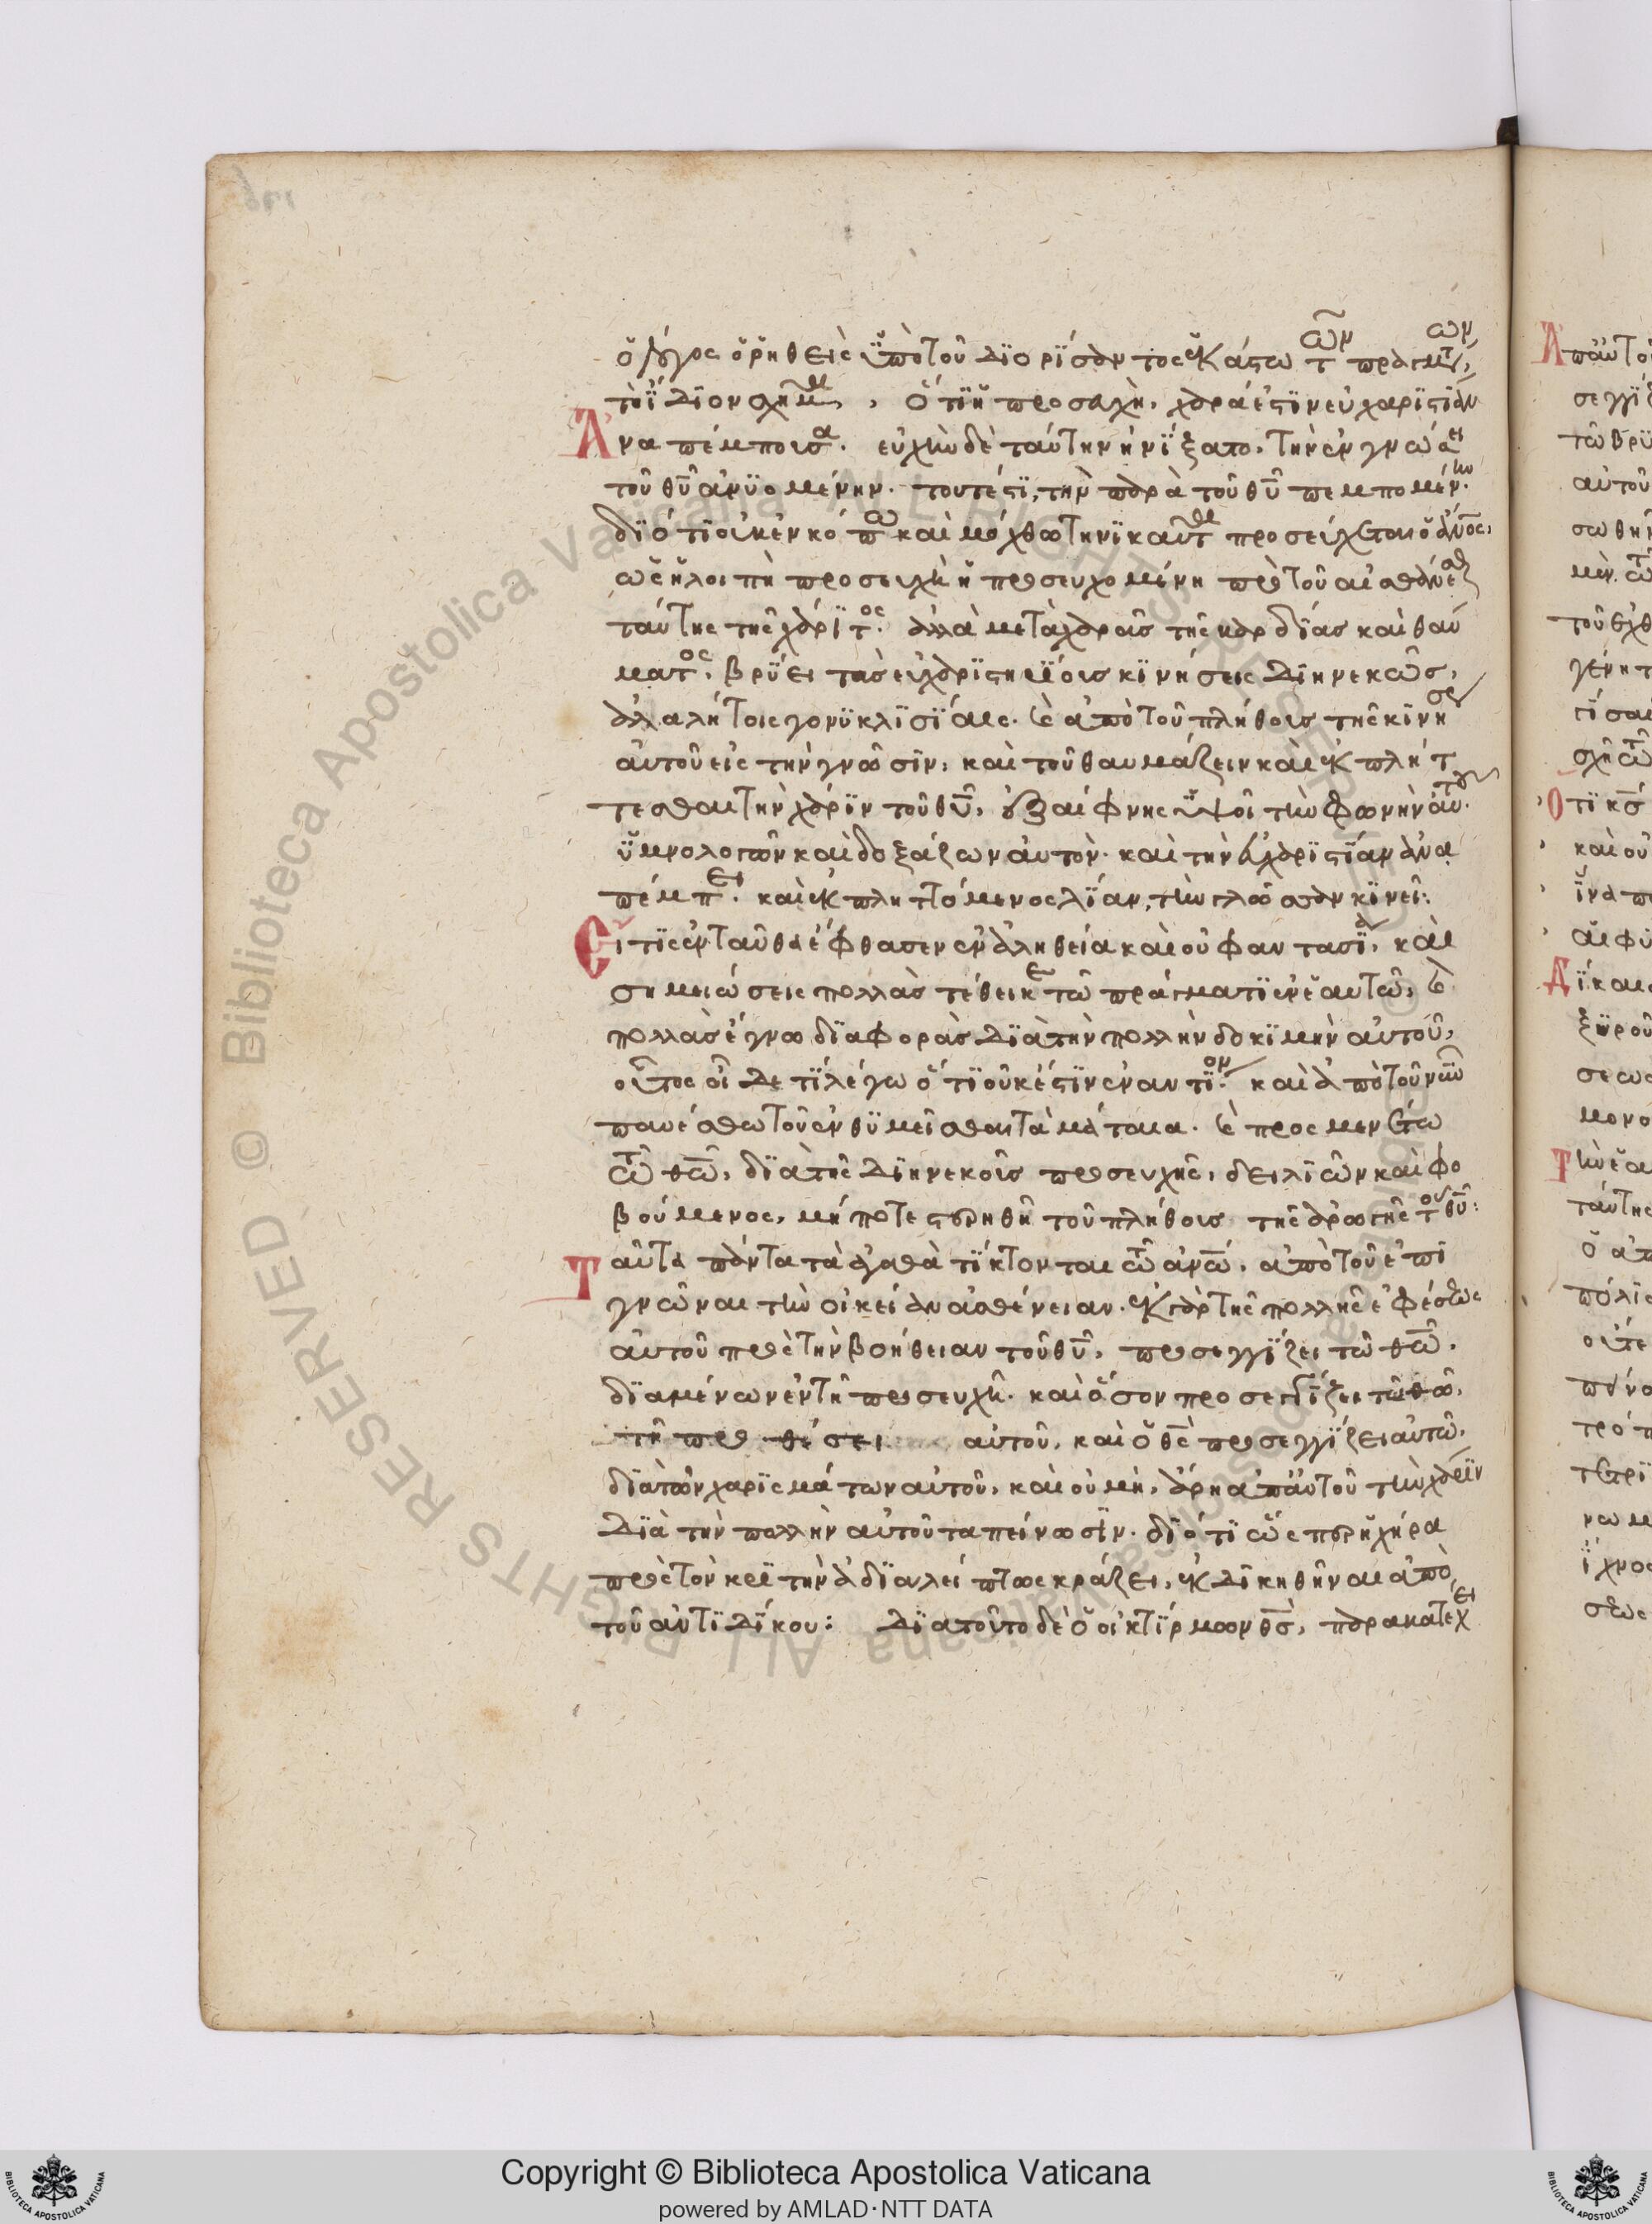 ὁ λόγος ὁ ῥηθεὶς ὑπὸ τοῦ διορίσαντος ἑκάστω τῶν πραγμάτων
τὸ ἴδιον σχῆμα, ὅτι ἡ προσευχὴ, χαρά ἐστιν εὐχαριστίαν
ἀναπέμπουσα. εὐχὴν δὲ ταύτην ἠνίξατο, τὴν ἐν γνώσει
τοῦ θυ ἀνυομένην. τουτέστι, τὴν παρὰ τοῦ θυ πεμπομένην.
διότι οὐκ ἐν κόπω καὶ μόχθω τηνικαῦτα προσεύχεται ὁ ανος,
ὡς ἡ λοιπὴ προσευχὴ ἡ προσευχομένη πρὸ τοῦ αἰσθάνεσθαι
ταύτης τῆς χάριτος. ἀλλὰ μετὰ χαρᾶς τῆς καρδίας καὶ θαύ
ματος, βρύει τὰς εὐχαριστηρίους κινήσεις διηνεκῶς,
ἀλαλήτοις γονυκλισίαις. καὶ ἀπὸ τοῦ πλήθους τῆς κινήσεως
αὐτοῦ εἰς τὴν γνῶσιν, καὶ τοῦ θαυμάζειν καὶ ἐκπλήτ
τεσθαι τὴν χάριν τοῦ θυ, ἐξαίφνης ὑψοῖ τὴν φωνὴν αὐτοῦ.
ὑμνολογῶν καὶ δοξάζων αὐτόν. καὶ τὴν εὐχαριστίαν ἀνα
πέμπει. καὶ ἐκπληττόμενος λίαν, τὴν γλῶσσαν κινεῖ:
Εἴ τις ἐνταῦθα ἔφθασεν ἐν ἀληθεία καὶ οὐ φαντασία, καὶ
σημειώσεις πολλὰς τέθεικε τῶ πράγματι ἐν ἑαυτῶ, καὶ
πολλὰς ἔγνω διαφορὰς διὰ τὴν πολλὴν δοκιμὴν αὐτοῦ,
οὗτος οἶδε τί λέγω ὅτι οὐκ ἔστιν ἐναντίον. καὶ ἀπὸ τοῦ νῦν
παυέσθω τοῦ ἐνθυμεῖσθαι τὰ μάταια. καὶ προσμενέτω
τῶ θω, διὰ τῆς διηνεκοῦς προσευχῆς, δειλιῶν καὶ φο
βούμενος, μήποτε στερηθῆ τοῦ πλήθους τῆς ἀρωγῆς τοῦ θυ:
Ταῦτα πάντα τὰ ἀγαθὰ τίκτονται τῶ ανω, ἀπὸ τοῦ ἐπι
γνῶναι τὴν οἰκείαν ἀσθένειαν. ἐκ γὰρ τῆς πολλῆς ἐφέσεως
αὐτοῦ πρὸς τὴν βοήθειαν τοῦ θυ, προσεγγίζει τῶ θω,
διαμένων ἐν τῆ προσευχῆ. καὶ ὅσον προσεγγίζει τῶ θω,
τῆ προθέσει αὐτοῦ, καὶ ὁ θς προσεγγίζει αὐτῶ,
διὰ τῶν χαρισμάτων αὐτοῦ, καὶ οὐ μὴ ἄρη ἀπ' αὐτοῦ τὴν χάριν
διὰ τὴν πολλὴν αὐτοῦ ταπείνωσιν. διότι ὡς περ ἡ χήρα
πρὸς τὸν κριτὴν ἀδιαλείπτως κράζει, ἐκδικηθῆναι ἀπὸ
τοῦ ἀντιδίκου: διὰ τοῦτο δὲ ὁ οἰκτίρμων θς, παρακατέχει